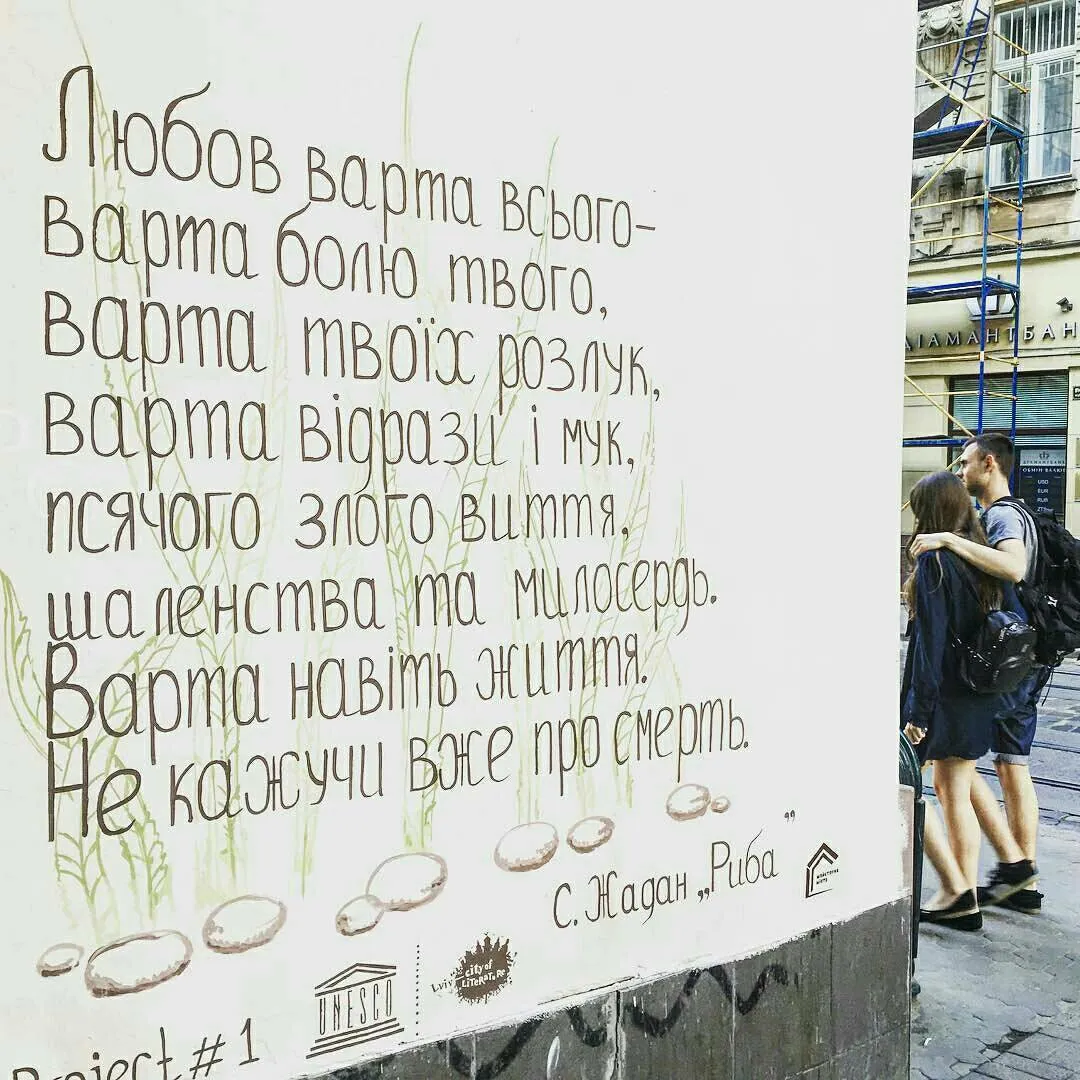 Любов варта всього–
варта болю твого,
варта твоїх розлук,
варта відрази і мук,
псячого злого виття,
шаленства та милосердь.
Варта навіть життя.
Не кажучи вже про смерть.
С. Жадан „Риба”
UNESCO
Lviv city of
LITERATURE
Project #1
ДІАМАНТБАН
ДІАМАНТБАНК
ОБМІН ВАЛЮТ
USD
EUR
RUB